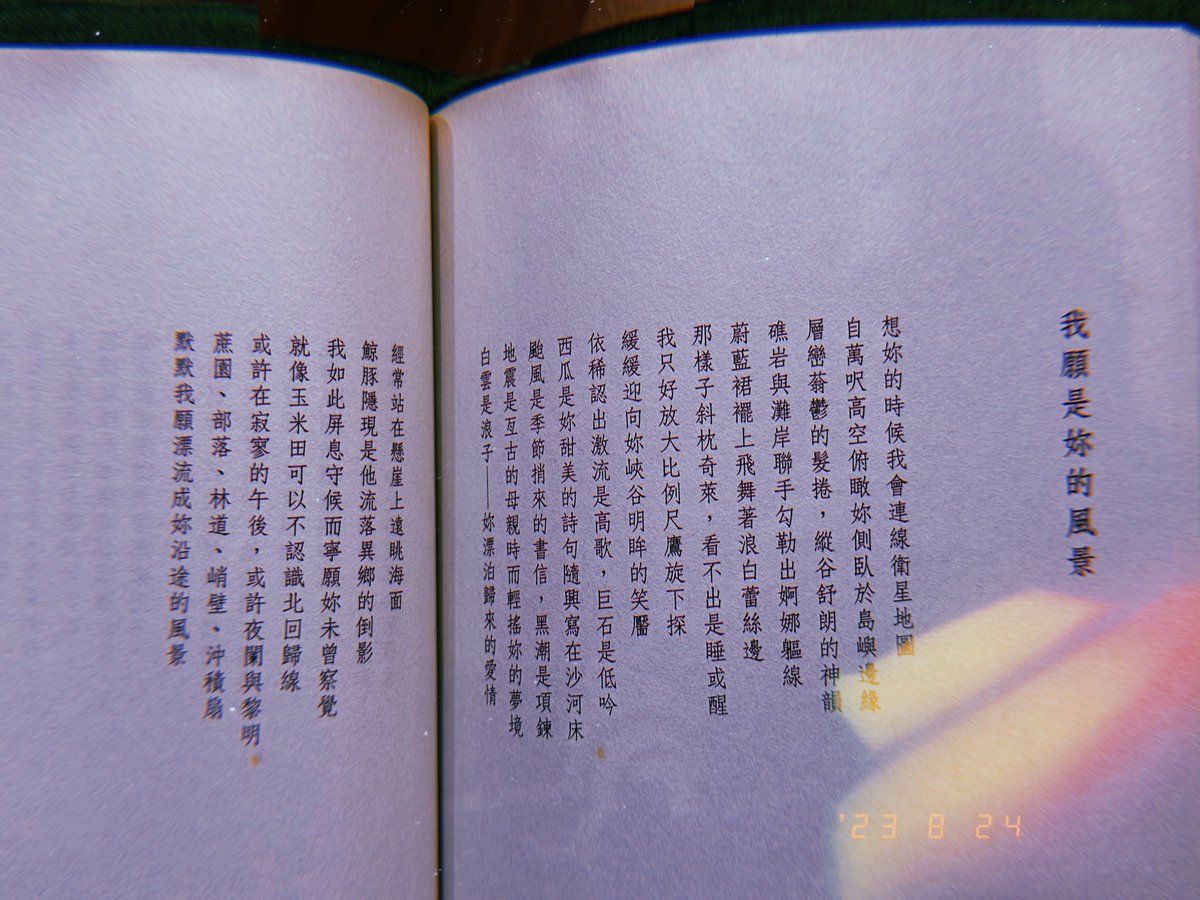 我願是妳的風景
想妳的時候我會連線衛星地圖
自萬呎高空俯瞰妳側臥於島嶼邊緣
層巒蓊鬱的髮捲，縱谷舒朗的神韻
礁岩與灘岸聯手勾勒出婀娜軀線
蔚藍裙襬上飛舞著浪白蕾絲邊
那樣子斜枕奇萊，看不出是睡或醒
我只好放大比例尺鷹旋下探
緩緩迎向妳峽谷明眸的笑靨
依稀認出激流是高歌，巨石是低吟
西瓜是妳甜美的詩句隨興寫在沙河床
颱風是季節捎來的書信，黑潮是項鍊
地震是亙古的母親時而輕搖妳的夢境
白雲是浪子——妳漂泊歸來的愛情
經常站在懸崖上遠眺海面
鯨豚隱現是他流落異鄉的倒影
我如此屏息守候而寧願妳未曾察覺
就像玉米田可以不認識北回歸線
或許在寂寥的午後，或許夜闌與黎明
蔗園、部落、林道、峭壁、沖積扇
默默我願漂流成妳沿途的風景
'23 8 24